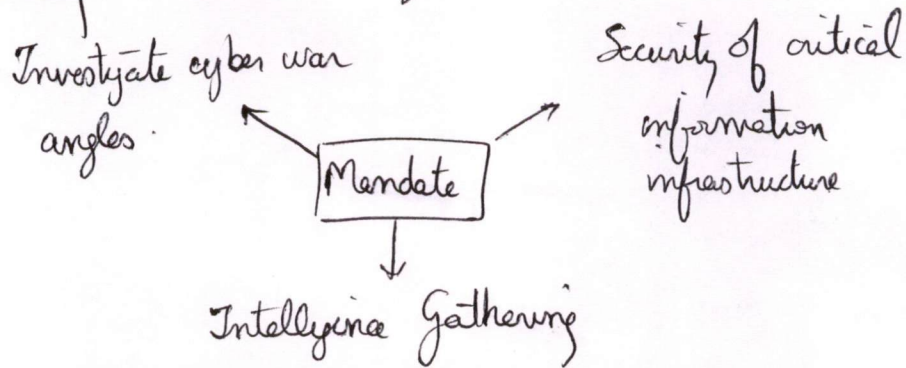 Investigate cyber war
angles.
Security of critical
information
infrastructure
Mandate
Intelligence Gathering